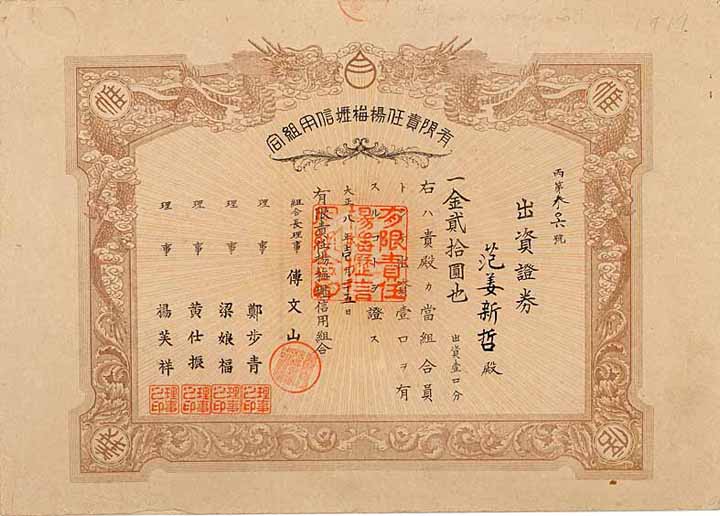 1919
有限責任楊梅壢信用組合
出資證券
范姜新哲殿
一金貳拾圓也
出資壹口分
右ハ貴殿カ當組合員
ト
出資壹口ヲ有
スルコトヲ證ス
大正八年
五日
有限責任楊梅壢信用組合
組合長理事 傅文山
理事 鄭步青
理事 梁娘福
理事 黄仕振
理事 楊芙祥
理事之印
理事之印
理事之印
理事之印